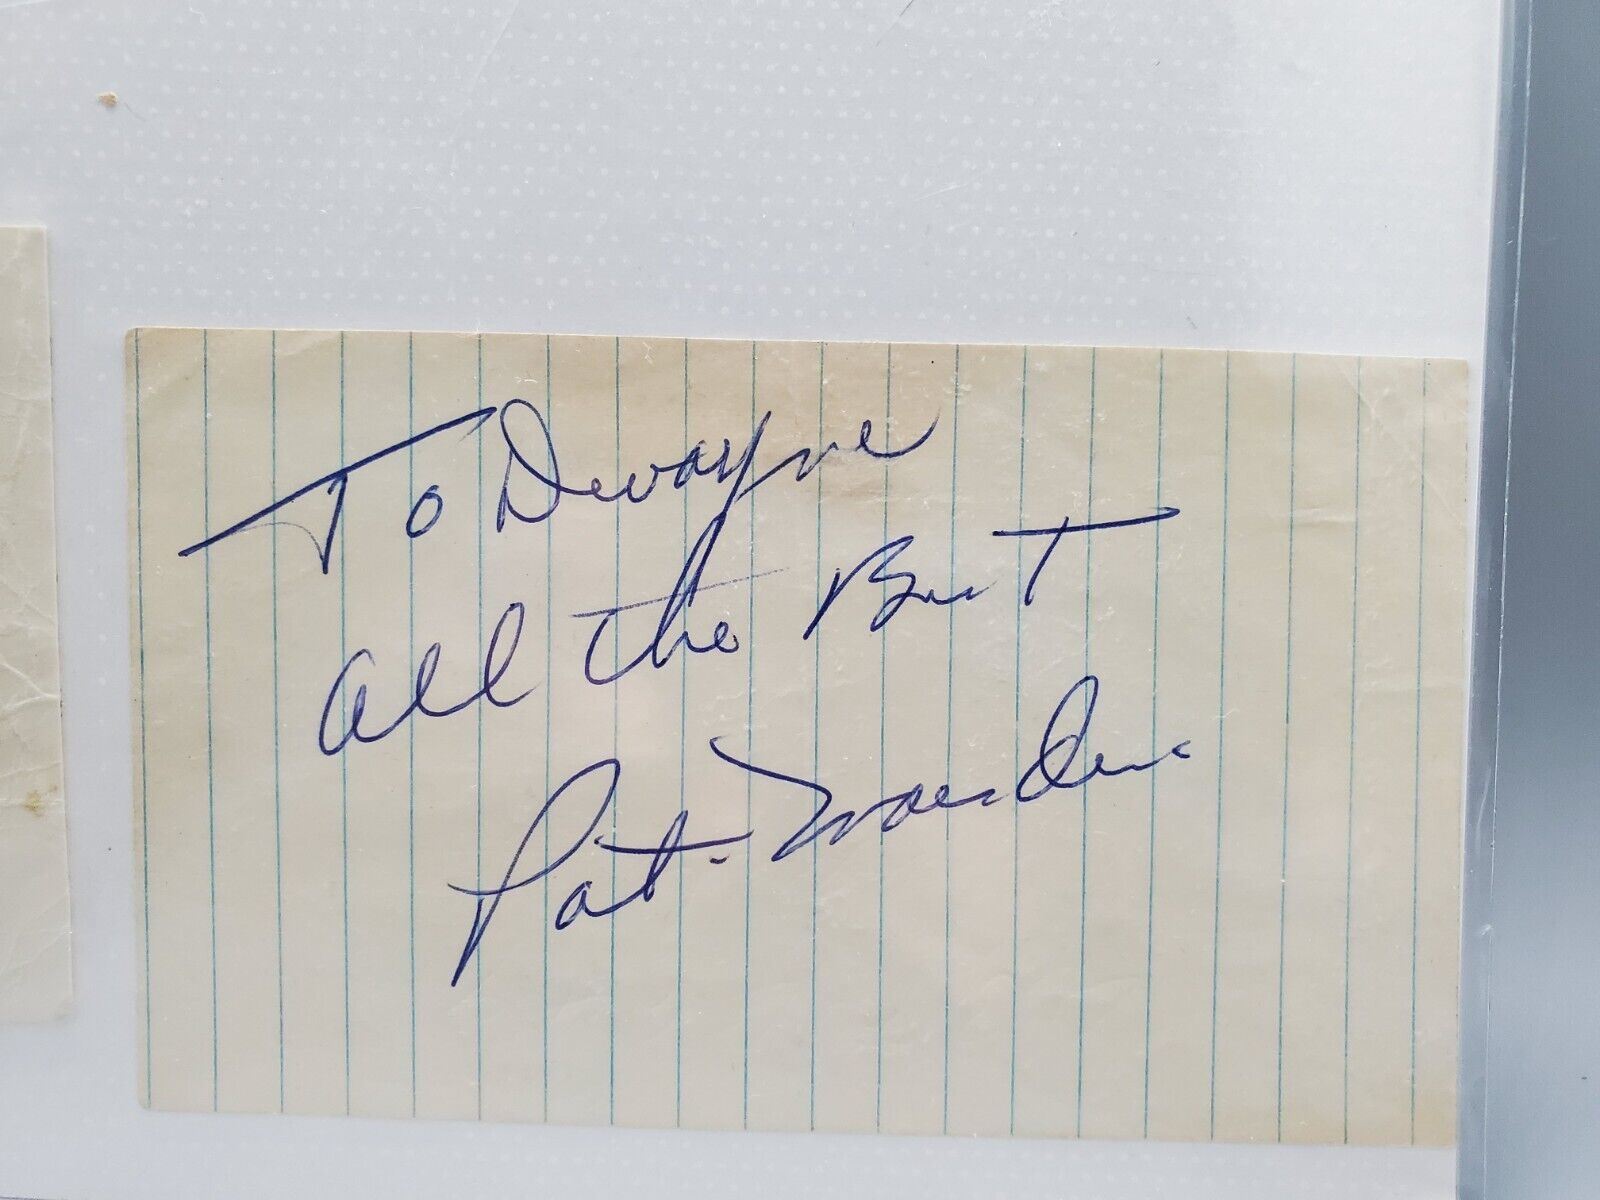 To Dwayne
all the Best
Pat